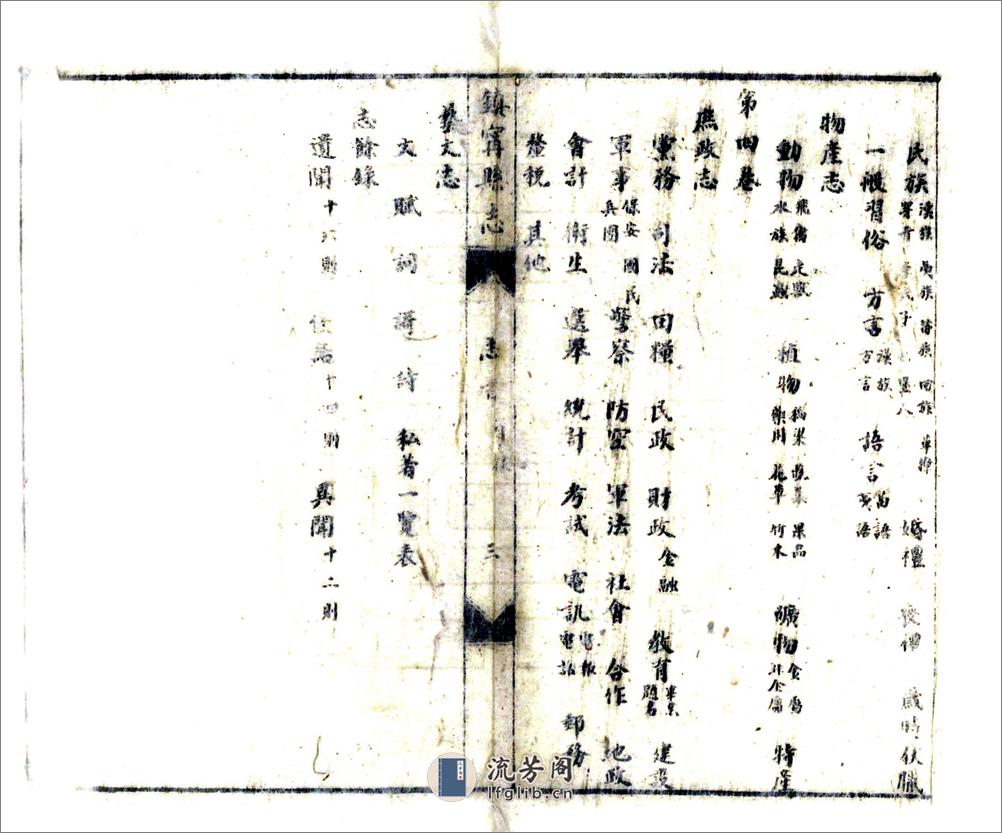 民族 漢族 夷族 苗族 回族 婚禮 喪禮 歲時伏臘
一般習俗 方言 漢族方言 語言 苗語 夷語
物產志
動物 飛禽 走獸 水族 昆蟲 植物 稻粱 蔬菜 果品 藥用 花草 竹木 礦物 金屬 非金屬 特產
第四卷
縣政志
黨務 司法 田糧 民政 財政 金融 教育 畢業題名 建設
軍事 保安 國民兵團 警察 防空 軍法 社會 合作 地政
會計 衛生 選舉 統計 考試 電訊 電報 電話 郵務
釐稅 其他
鎮寧縣志 志 目錄 三
藝文志
文 賦 詞 詩 私著一覽表
志餘錄
遺聞 十六則 十四則 異聞 十二則
流芳阁
lfglib.cn